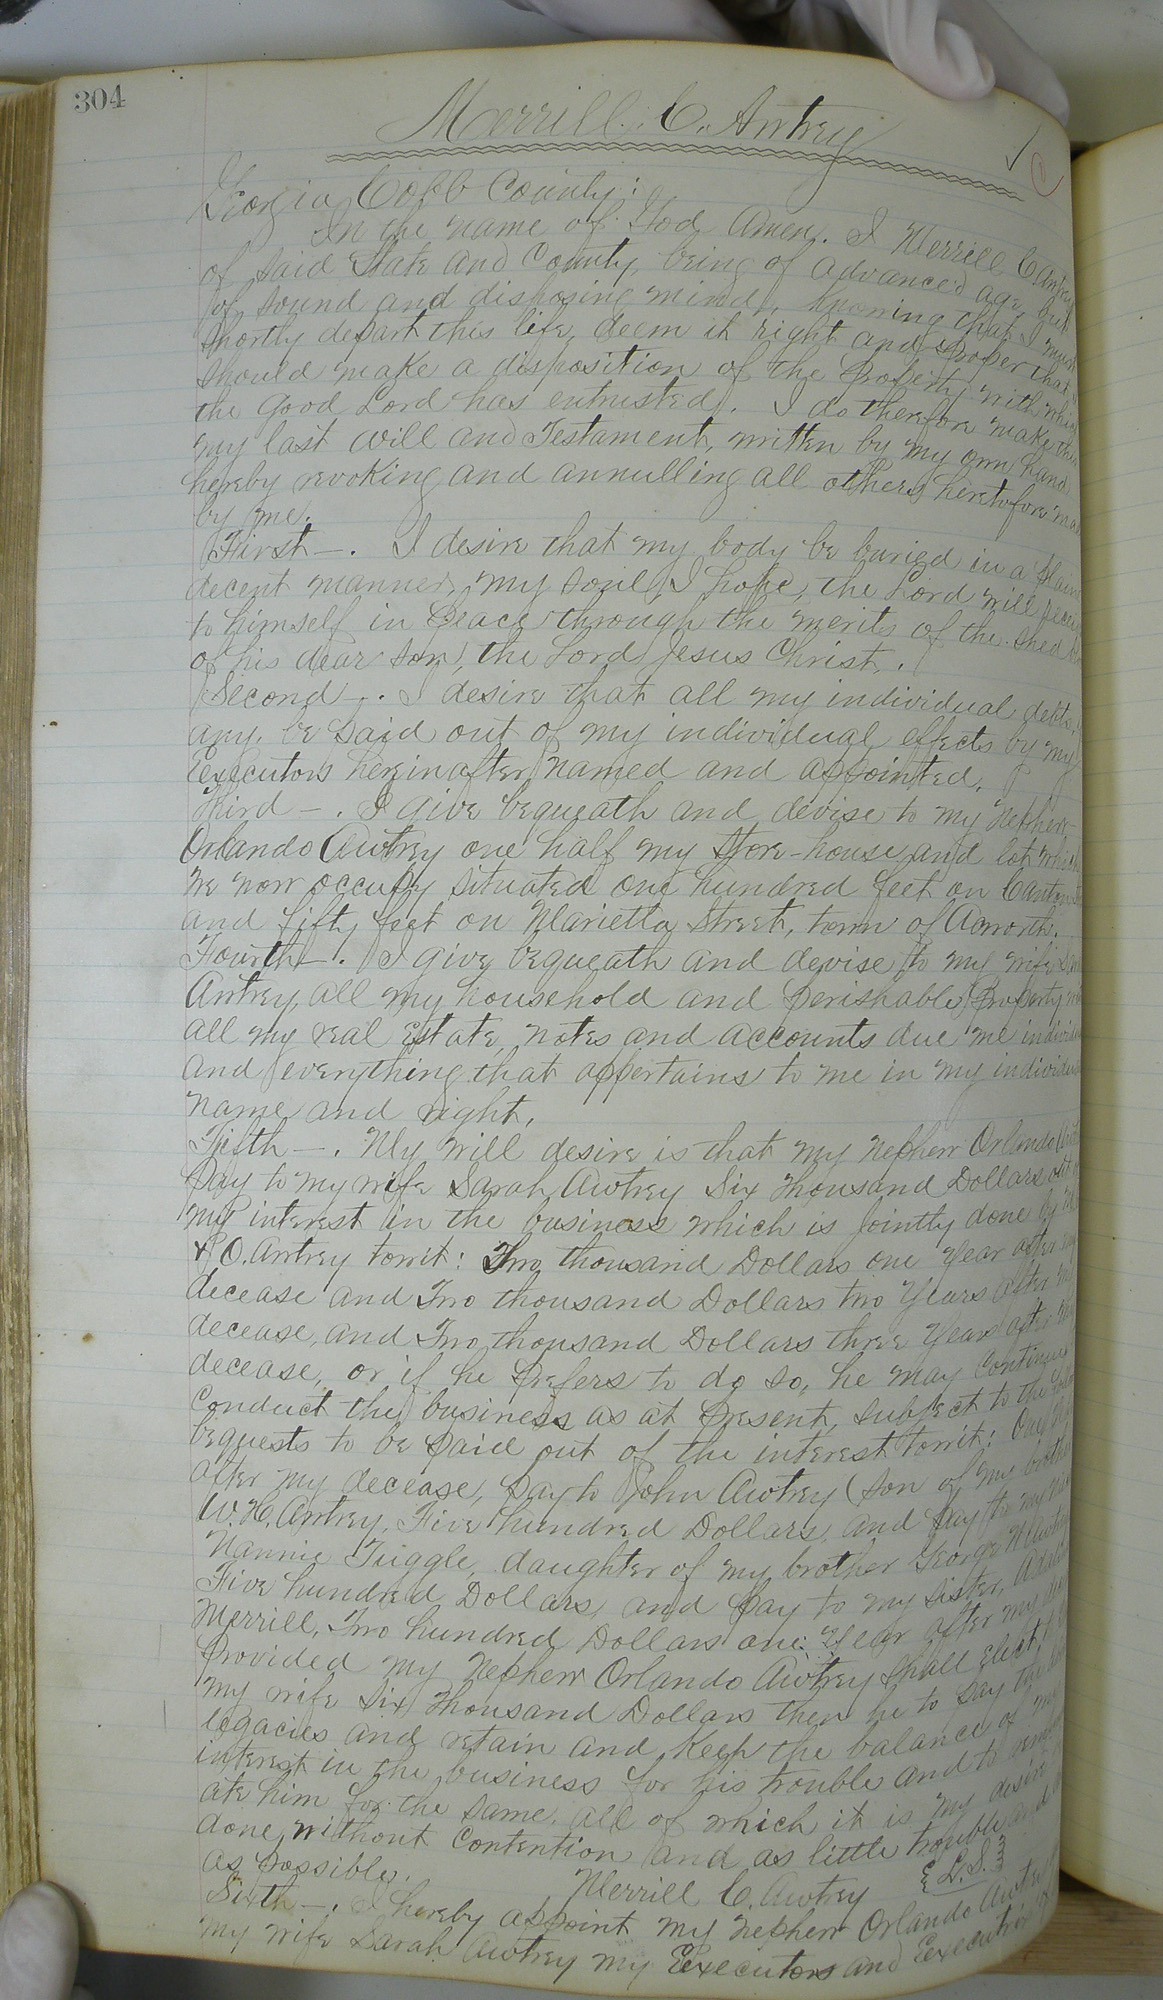 304
Merrill C. Awtrey
Georgia Cobb County:
In the name of God, Amen. I Merrill C. Awtrey
of said State and County, being of advanced age, but
of sound and disposing mind, knowing that I must
shortly depart this life, deem it right and proper that I
should make a disposition of the property with which
the Good Lord has entrusted. I do therefore make this
my last will and Testament, written by my own hand
hereby revoking and annulling all others heretofore made
by me.
First —. I desire that my body be buried in a plain
decent manner, my soul I hope, the Lord will receive
to himself in peace through the merits of the shed
of his dear son, the Lord Jesus Christ.
Second —. I desire that all my individual debts, if
any, be paid out of my individual effects by my
Executors hereinafter named and appointed.
Third —. I give bequeath and devise to my nephew
Orlando Awtrey one half my Store-house and lot which
we now occupy situated one hundred feet on Canton
and fifty feet on Marietta Street, town of Acworth.
Fourth —. I give, bequeath and devise to my wife
Awtrey all my household and perishable property
all my real Estate, notes and accounts due me
and everything that appertains to me in my
name and right.
Fifth —. My will desire is that my nephew Orlando
pay to my wife Sarah Awtrey Six Thousand Dollars out
my interest in the business which is jointly done by
& O. Awtrey towit: Two thousand Dollars one Year after my
decease and Two thousand Dollars two Years after my
decease, and Two thousand Dollars three Years after my
decease, or if he prefers to do so, he may continue
conduct the business as at present, subject to the
bequests to be paid out of the interest towit:
after my decease, pay to John Awtrey (son of my brother
W. H. Awtrey, Five hundred Dollars, and pay to my
Nannie Tuggle, daughter of my brother George
Five hundred Dollars, and pay to my sister,
Merrill, Two hundred Dollars one Year after my
Provided my nephew Orlando Awtrey shall elect
my wife Six Thousand Dollars then he to pay the
legacies and retain and keep the balance of my
interest in the business for his trouble and to
ate him for the same, all of which it is my desire
done, without contention and as little trouble and
as possible.
Merrill C. Awtrey {L.S.}
Sixth —. I hereby appoint my nephew Orlando Awtrey
my wife Sarah Awtrey my Executors and Executrix